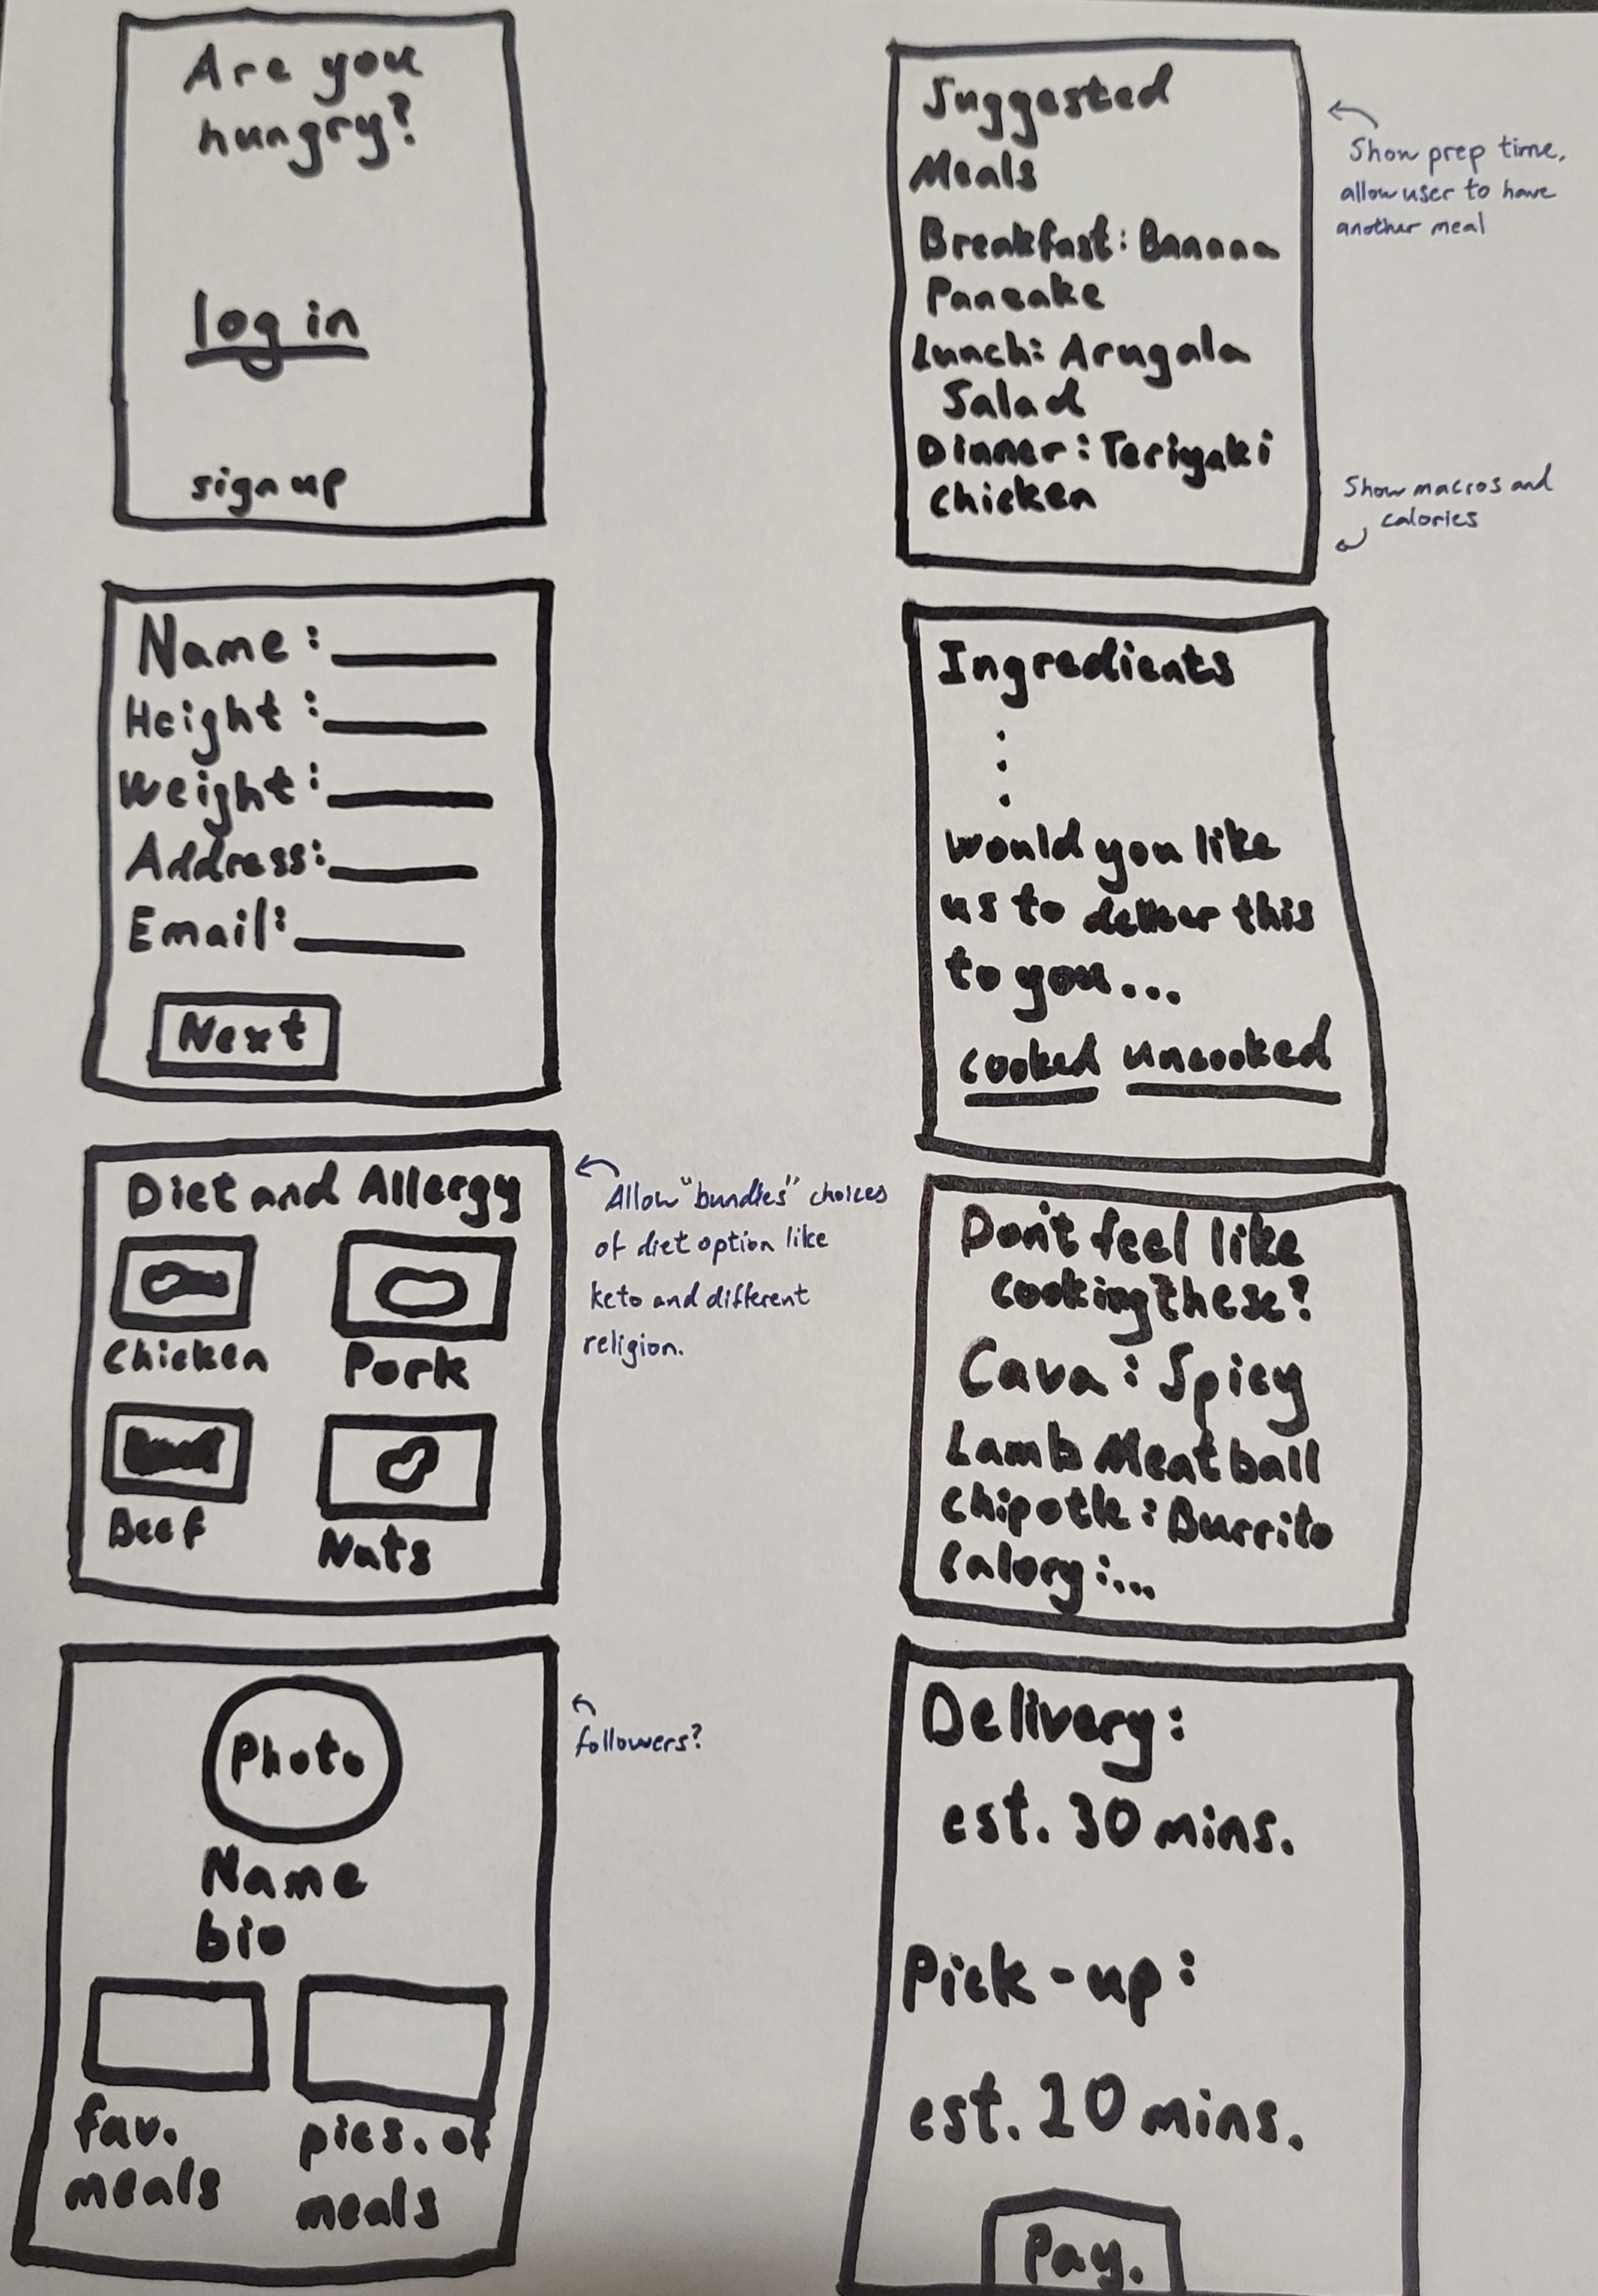 Are you
hungry?
log in
sign up
Name:
Height:
Weight:
Address:
Email:
Next
Diet and Allergy
Chicken
Pork
Beef
Nuts
Allow "bundles" choices
of diet option like
keto and different
religion.
Photo
Name
bio
fav.
meals
pics. of
meals
followers?
Suggested
Meals
Breakfast: Banana
Pancake
Lunch: Arugala
Salad
Dinner: Teriyaki
chicken
Show prep time,
allow user to have
another meal
Show macros and
calories
Ingredients
would you like
us to deliver this
to you...
cooked uncooked
Don't feel like
cooking these?
Cava: Spicy
Lamb Meatball
Chipotle: Burrito
Calory:...
Delivery:
est. 30 mins.
Pick-up:
est. 20 mins.
Pay.